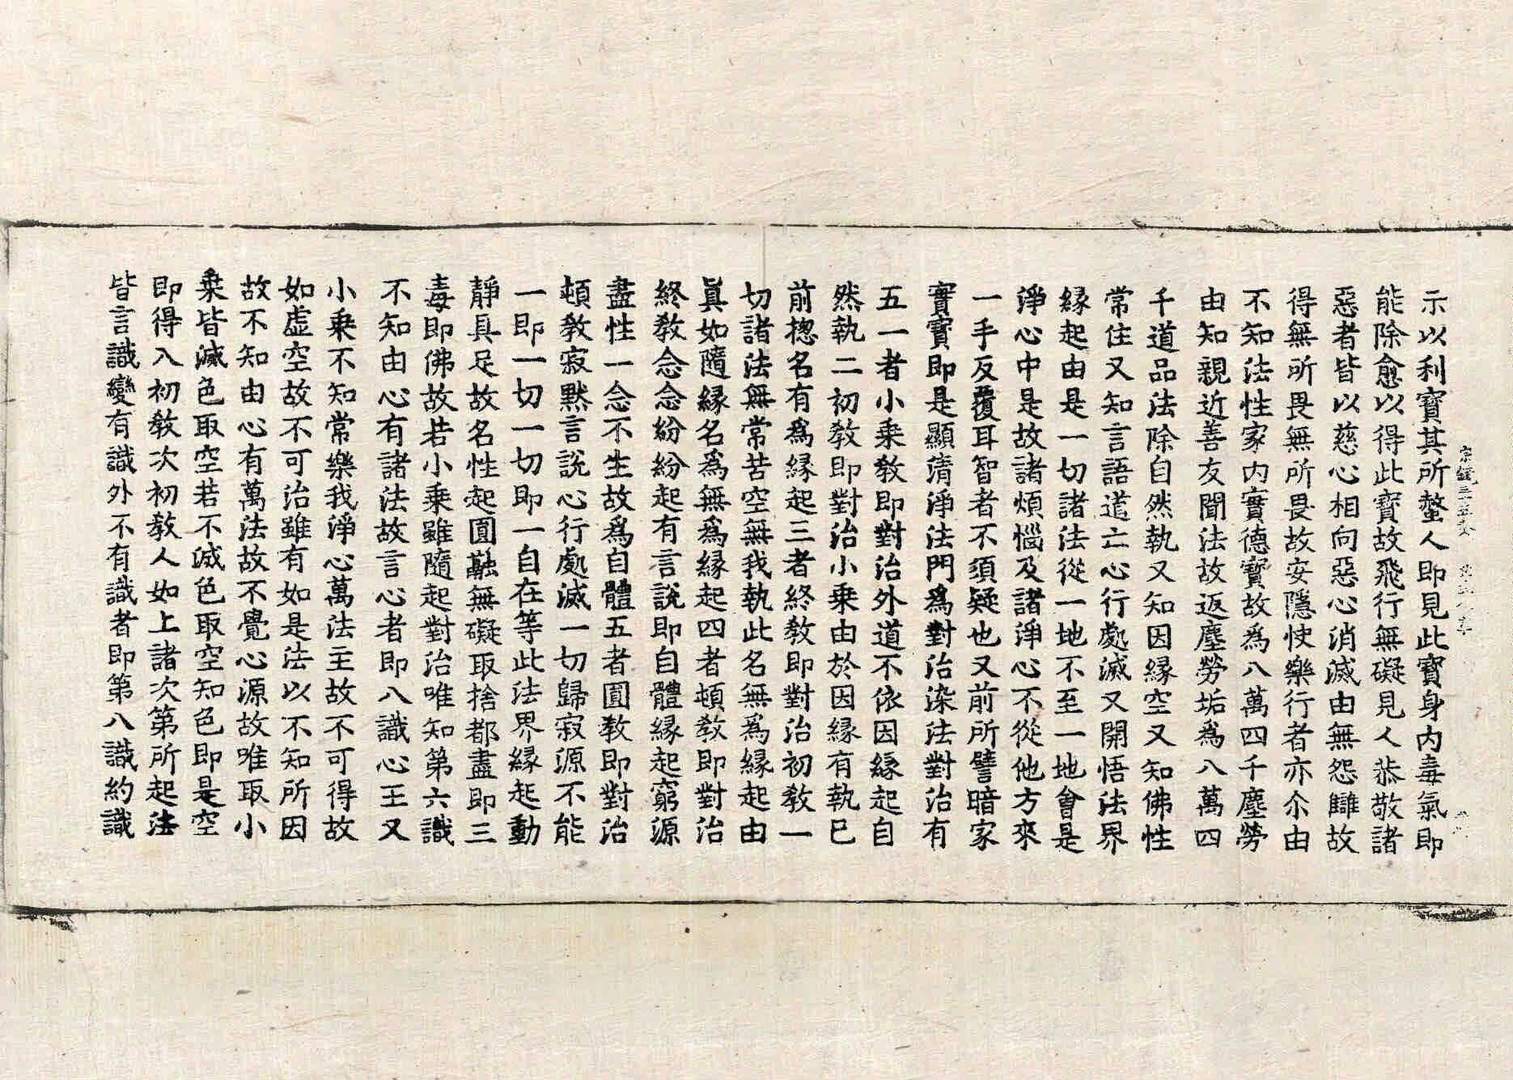 示以利寶其所螫人即見此寶身內毒氣即
能除愈以得此寶故飛行無礙見人恭敬諸
惡者皆以慈心相向惡心消滅由無怨讎故
得無所畏無所畏故安隱快樂行者亦尒由
不知法性家內實德寶故為八萬四千塵勞
由知親近善友聞法故返塵勞垢為八萬四
千道品法除自然執又知因緣空又知佛性
常住又知言語道亡心行處滅又開悟法界
緣起由是一切諸法從一地不至一地會是
淨心中是故諸煩惱及諸淨心不從他方來
一手反覆耳智者不須疑也又前所譬暗家
實寶即是顯清淨法門為對治染法對治有
五一者小乘教即對治外道不依因緣起自
然執二初教即對治小乘由於因緣有執已
前揔名有為緣起三者終教即對治初教一
切諸法無常苦空無我執此名無為緣起由
眞如隨緣名為無為緣起四者頓教即對治
終教念念紛紛起有言說即自體緣起窮源
盡性一念不生故為自體五者圓教即對治
頓教寂默言說心行處滅一切歸寂源不能
一即一切一切即一自在等此法界緣起動
靜具足故名性起圓融無礙取捨都盡即三
毒即佛故若小乘雖隨起對治唯知第六識
不知由心有諸法故言心者即八識心王又
小乘不知常樂我淨心萬法主故不可得故
如虛空故不可治雖有如是法以不知所因
故不知由心有萬法故不覺心源故唯取小
乘皆滅色取空若不滅色取空知色即是空
即得入初教次初教人如上諸次第所起法
皆言識變有識外不有識者即第八識約識